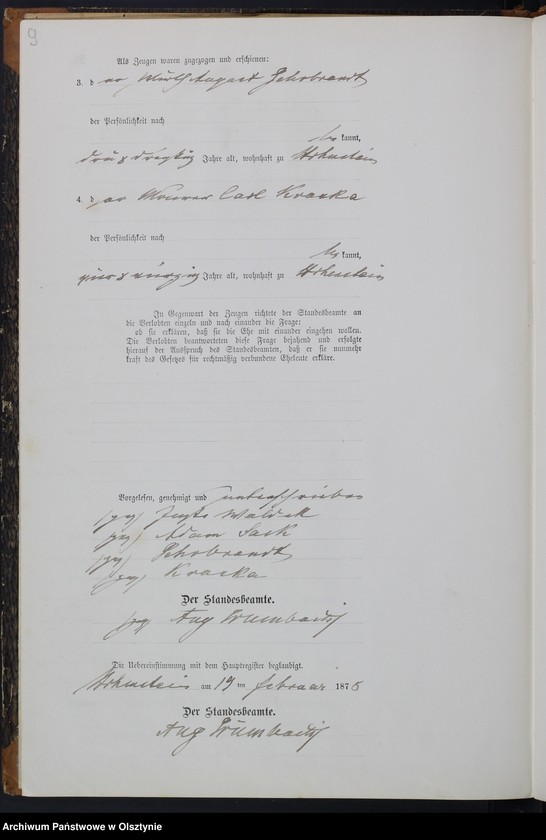 9
Als Zeugen waren zugezogen und erschienen:
3. d er Wirth August Gehrbrandt
der Persönlichkeit nach
be kannt,
drei & dreißig Jahre alt, wohnhaft zu Hohenstein
4. d er Maurer Carl Kraska
der Persönlichkeit nach
be kannt,
vier & vierzig Jahre alt, wohnhaft zu Hohenstein
In Gegenwart der Zeugen richtete der Standesbeamte an
die Verlobten einzeln und nach einander die Frage:
ob sie erklären, daß sie die Ehe mit einander eingehen wollen.
Die Verlobten beantworteten diese Frage bejahend und erfolgte
hierauf der Ausspruch des Standesbeamten, daß er sie nunmehr
kraft des Gesetzes für rechtmäßig verbundene Eheleute erkläre.
Vorgelesen, genehmigt und unterschrieben
gez
gez Adam Sack
gez Gehrbrandt
gez Kraska
Der Standesbeamte.
gez Aug
Die Uebereinstimmung mit dem Hauptregister beglaubigt.
Hohenstein am 19 ten Februar 1876
Der Standesbeamte.
Aug
Archiwum Państwowe w Olsztynie